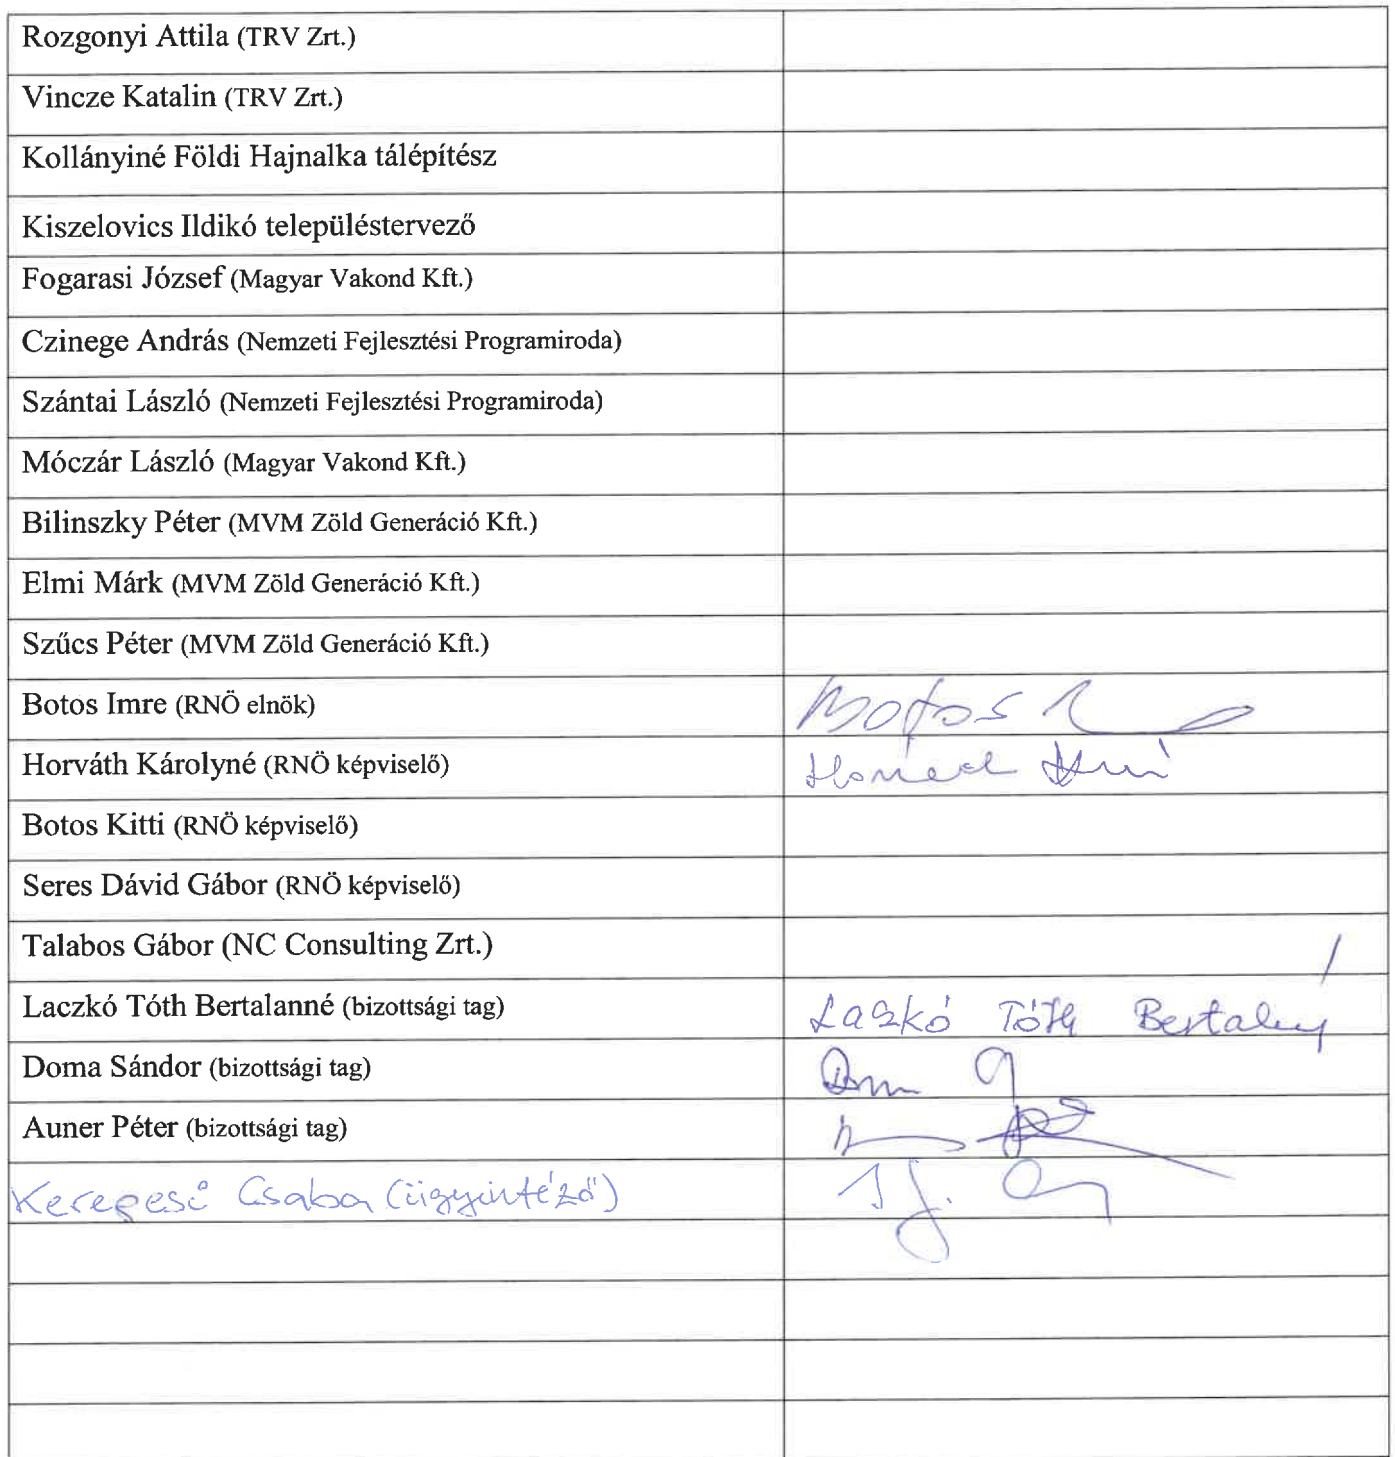 Rozgonyi Attila (TRV Zrt.)
Vincze Katalin (TRV Zrt.)
Kollányiné Földi Hajnalka tálépítész
Kiszelovics Ildikó településtervező
Fogarasi József (Magyar Vakond Kft.)
Czinege András (Nemzeti Fejlesztési Programiroda)
Szántai László (Nemzeti Fejlesztési Programiroda)
Móczár László (Magyar Vakond Kft.)
Bilinszky Péter (MVM Zöld Generáció Kft.)
Elmi Márk (MVM Zöld Generáció Kft.)
Szűcs Péter (MVM Zöld Generáció Kft.)
Botos Imre (RNÖ elnök) Botos
Horváth Károlyné (RNÖ képviselő)
Botos Kitti (RNÖ képviselő)
Seres Dávid Gábor (RNÖ képviselő)
Talabos Gábor (NC Consulting Zrt.)
Laczkó Tóth Bertalanné (bizottsági tag) Laczkó Tóth
Doma Sándor (bizottsági tag)
Auner Péter (bizottsági tag)
Kerepesi Csaba (ügyintéző)